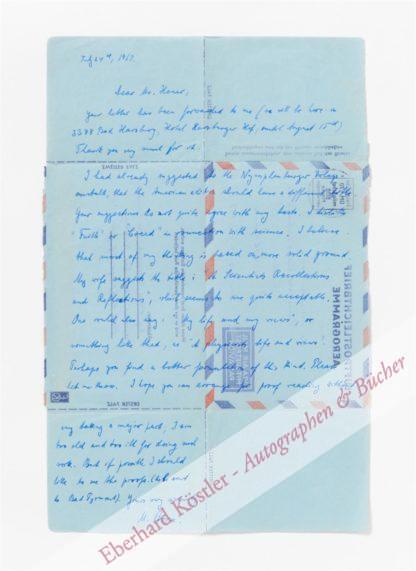 July 24th, 1967.
Dear Mr. Haner,
Your letter has been forwarded to me (we will be here in
3388 Bad Harzburg, Hotel Harzburger Hof, until August 15th)
Thank you very much for it.
I had already suggested to the Nymphenburger Verlags-
anstalt, that the American edition should have a different title
Your suggestions do not quite agree with my taste. I dislike
"Faith" or "Creed" in connection with science. I believe
that most of my thinking is based on more solid ground.
My wife suggests the title: "A Scientists Recollections
and Reflections", which seems to me quite acceptable.
One could also say: "My life and my views", or
something like that, or "A physicists life and views".
Perhaps you find a better formulation of this kind. Please
let me know. I hope you can arrange for proof reading without
my taking a major part, I am
too old and too ill for doing such
work. But if possible I should
like to see the proofs
to Bad Pyrmont). Yours very
AEROGRAMME
POSTLEICHTBRIEF
Eberhard Köstler - Autographen & Bücher